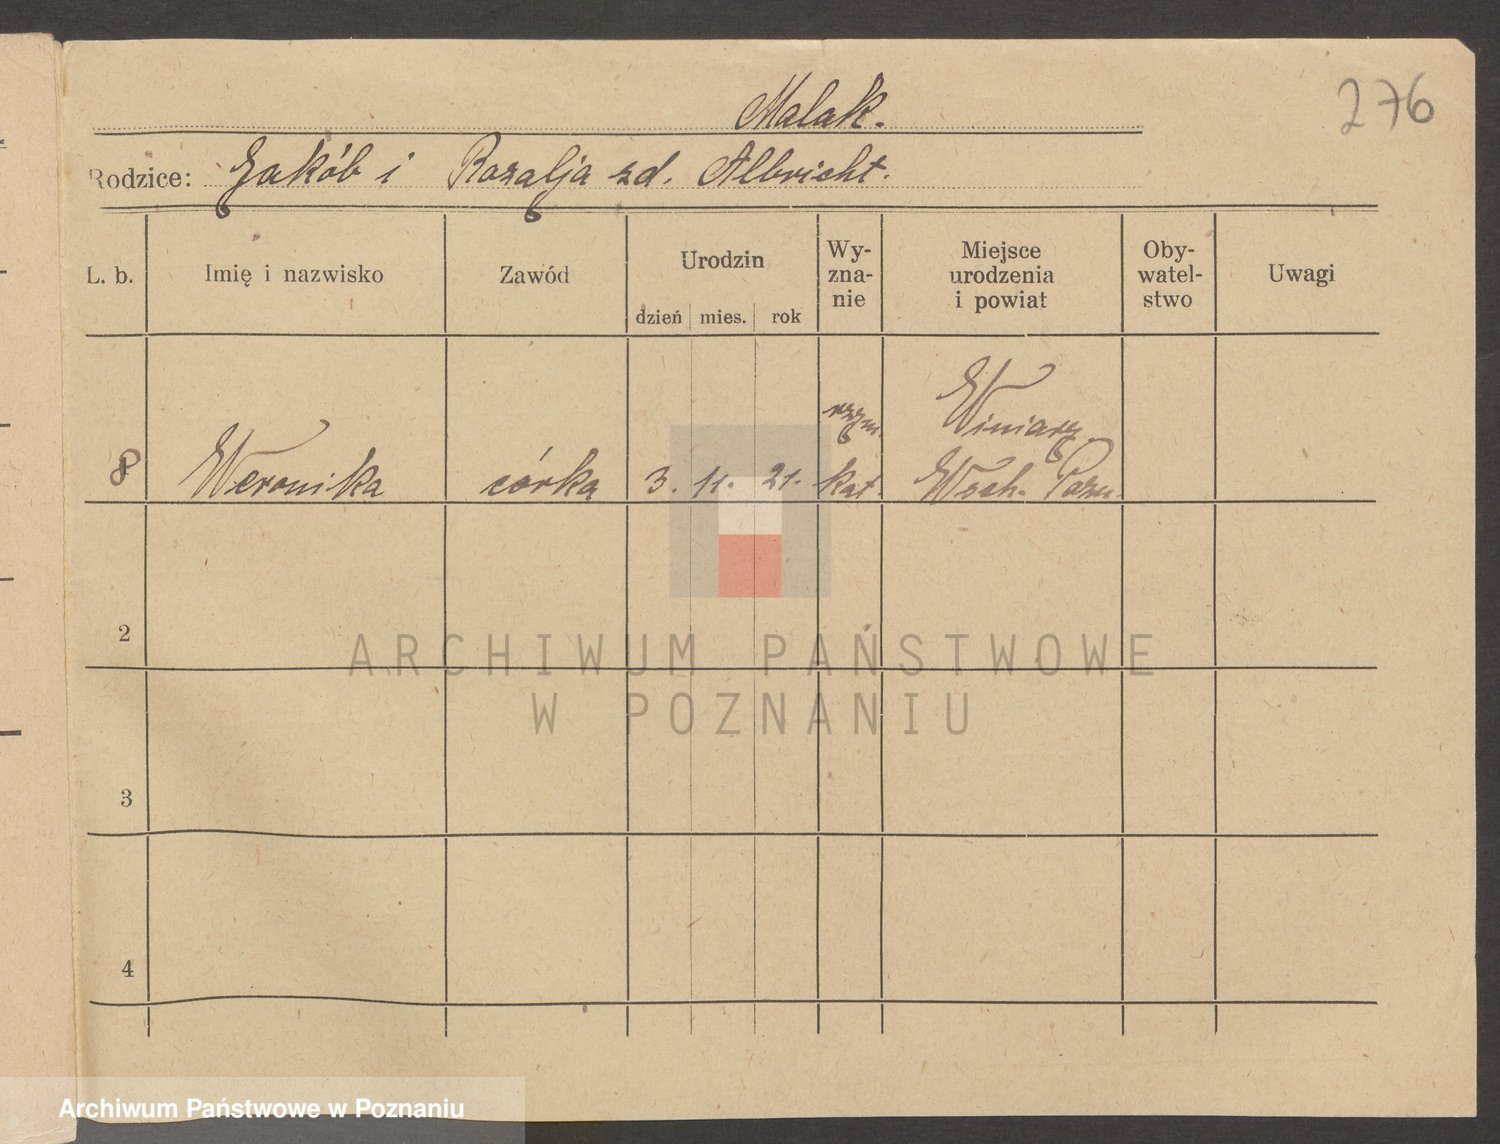 276
Malak.
Rodzice: Jakób i Rozalja zd. Albricht.
L. b.
Imię i nazwisko
Zawód
Urodzin
dzień mies. rok
Wy-
zna-
nie
Miejsce
urodzenia
i powiat
Oby-
watel-
stwo
Uwagi
8 Weronika córka 3. 11. 21. rzym. kat. Winiary
Wsch. Pozn.
2
3
4
ARCHIWUM PAŃSTWOWE
W POZNANIU
Archiwum Państwowe w Poznaniu